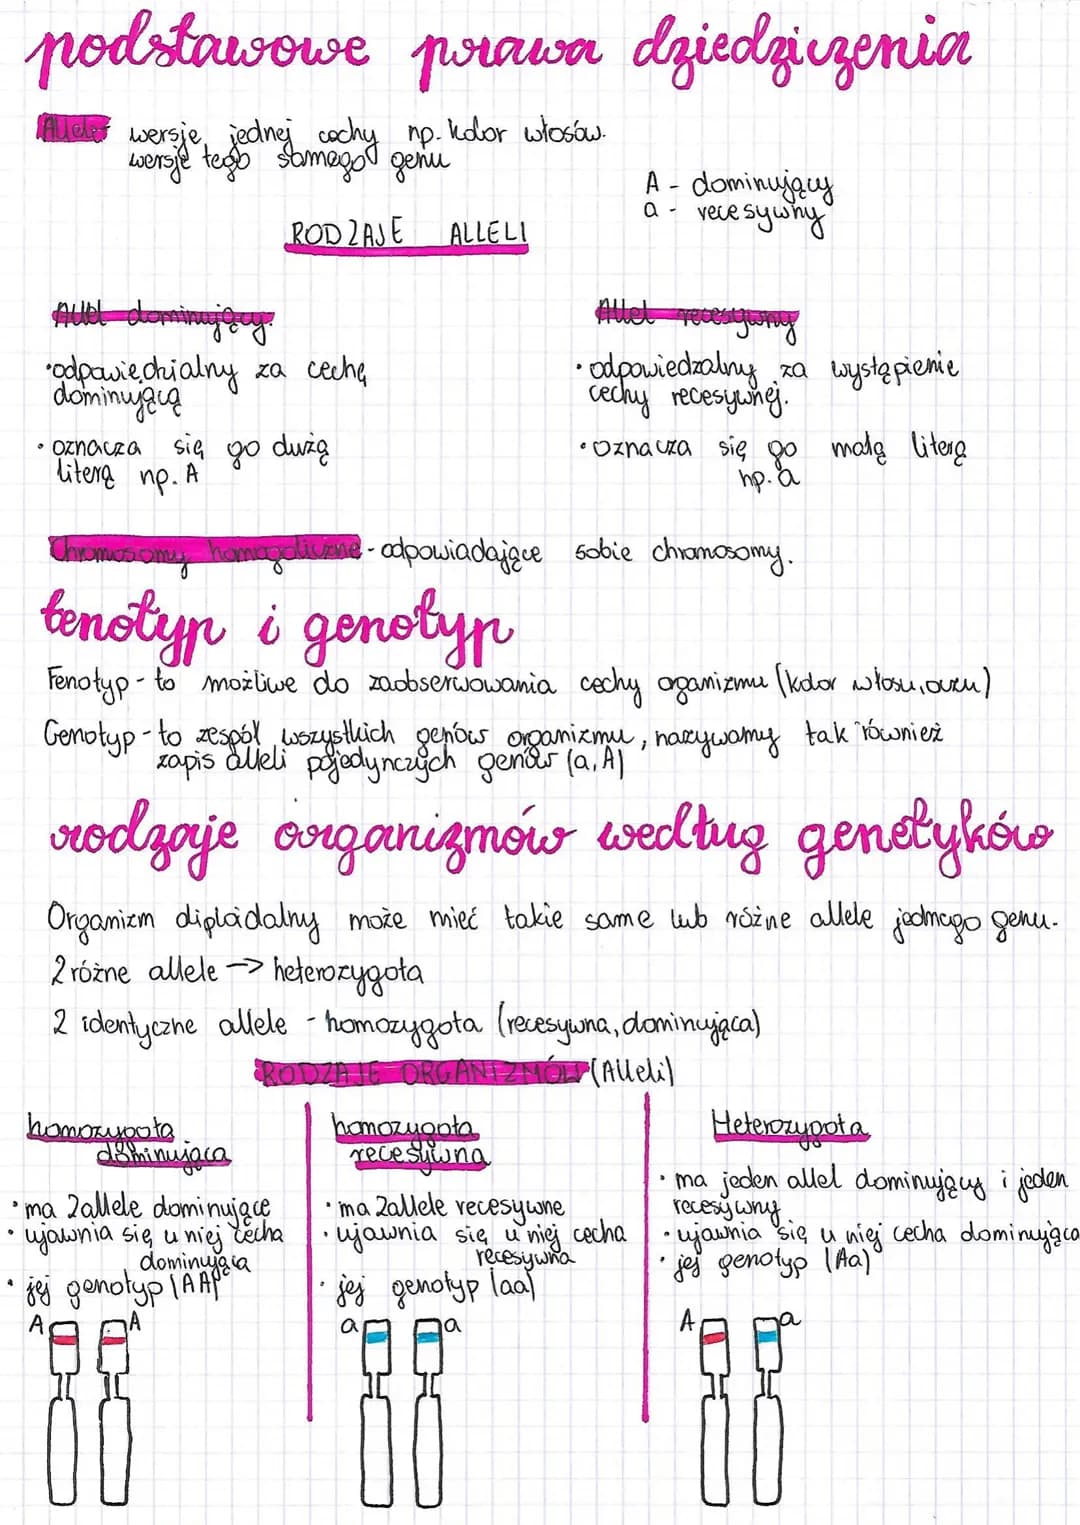 podstawowe prawa dziedziczenia
Allele wersje jednej cechy np. kolor włosów.
wersje tego samego genu
A - dominujący
a - recesywny
RODZAJE ALLELI
Allel dominujący.
•odpowiedzialny za cechę
dominującą
• oznacza się go dużą
literą np. A
Allel recesywny
• odpowiedzalny za wystąpienie
cechy recesywnej.
• oznacza się go małą literą
np. a
Chromosomy homogoliczne - odpowiadające sobie chromosomy.
fenotyp i genotyp
Fenotyp - to możliwe do zaobserwowania cechy organizmu (kolor włosu, oczu)
Genotyp - to zespół wszystkich genów organizmu, nazywamy tak również
zapis alleli pojedynczych genów (a, A)
rodzaje organizmów według genetyków
Organizm diploidalny może mieć takie same lub różne allele jednego genu.
2 różne allele -> heterozygota
2 identyczne allele - homozygota (recesywna, dominująca)
RODZAJE ORGANIZMÓW (Alleli)
homozygota
dominująca
• ma 2 allele dominujące
• ujawnia się u niej cecha
dominująca
• jej genotyp (AA)
A A
homozygota
recesywna
• ma 2 allele recesywne
• ujawnia się u niej cecha
recesywna
• jej genotyp (aa)
a a
Heterozygota
• ma jeden allel dominujący i jeden
recesywny
• ujawnia się u niej cecha dominująca
• jej genotyp (Aa)
A a